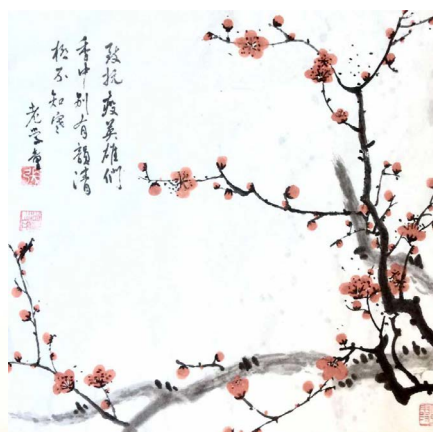 致抗疫英雄們
香中别有韻清
极不知寒
老学童